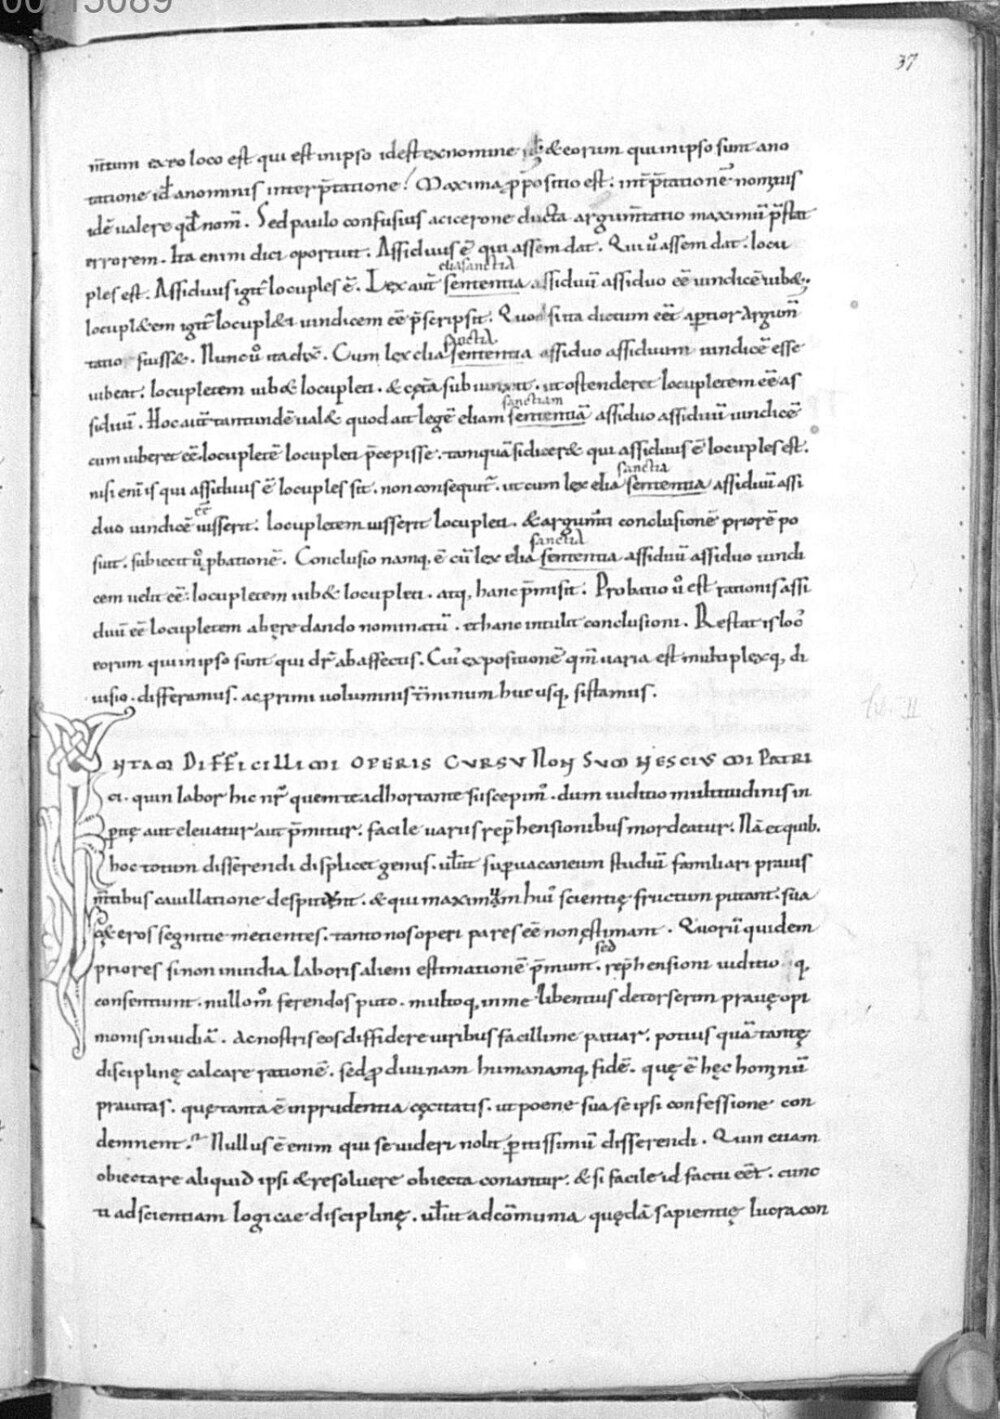 00 15089
37
m̅tum ex eo loco est qui est in ipso id est ex nomine id͛ & eorum qui in ipso sunt a no
tatione id͛ a nominis interp̅tatione. Maxima p̱positio est. int̅p̅tatione̅ nominis
ide̅ ualere qd̅ nom̅. Sed paulo confusius a cicerone ducta argum̅tatio maximu̅ p̅stat
errorem. Ita enim dici oportuit. Assiduus e̅ qui assem dat. Qui u͛o assem dat. locu
ples est. Assiduus igit̅ locuples e̅. Lex aut̅ sententia assiduu̅ assiduo ee̅ uindice̅ iub&.
elia sanctia
locupl&em igit̅ locupl&i uindicem ee̅ p̅scripsit. Quod si ita dictum ee̅t apertior argum̅
tatio fuiss&. Nunc u͛o ita dix̅. Cum lex elia sententia assiduo assiduum uindice̅ esse
sanctia
iubeat. locupletem iub& locupleti. & cęt̅a subiunxit. ut ostenderet locupletem ee̅ as
siduu̅. Hoc aut̅ tantunde̅ ual& quod ait lege̅ eliam sententia̅ assiduo assiduu̅ uindice̅
sanctiam
cum iuberet ee̅. locuplete̅ locupleti p̅cepisse. tamqua̅ si dicer& qui assiduus e̅ locuples est.
nisi eni̅ is qui assiduus e̅ locuples sit. non consequit̅. ut cum lex elia sententia assiduu̅ assi
sanctia
duo uindice̅ iusserit. locupletem iusserit locupleti. & argum̅ti conclusione̅ priore̅ po
ee̅
suit. subiecit u͛o p̱batione̅. Conclusio namq. e̅ cu̅ lex elia sententia assiduu̅ assiduo uindi
sanctia
cem uelit ee̅. locupletem iub& locupleti. atq, hanc p̅misit. Probatio u͛o est rationis assi
duu̅ ee̅ locupletem ab ęre dando nominatu̅. et hanc intulit conclusioni. Restat is loc͛
eorum qui in ipso sunt qui dr̅ ab affectis. Cui͛ expositione̅ qm̅ uaria est multiplexq, di
uisio. differamus. ac primi uoluminis t̅minum huc usq, sistamus.
NTAM DIFFICILLIMI OPERIS CURSU NON SUM NESCIUS MI PATRI
ci. quin labor hic nr̅ quem te adhortante suscepim͛. dum iuditio multitudinis in
p̱itę aut eleuatur aut p̅mitur. facile uariis rep̅hensionibus mordeatur. Na̅ et quib.
hoc totum disserendi displicet genus. uel̅ut sup̱uacaneum studiu̅ familiari prauis
m̅tibus cauillatione despiciunt. & qui maximum hui͛ scientię fructum putant. sua
& eros segnitie metientes. tanto nos operi pares ee̅ non ęstimant. Quoru̅ quidem
priores si non inuidia laboris alieni estimatione̅ p̅munt. rep̅hensioni iuditio q,
sed
consentiunt. nullom͛ ferendos puto. multoq, in me libentius detorserim prauę opi
nionis inuidia̅. ac nostri eos diffidere uiribus facillime patiar. potius qua̅ tantę
disciplinę calcare ratione̅. sed p̱ diuinam humanamq, fide̅. quę e̅ hęc hominu̅
prauitas. quę tanta e̅ inprudentia cęcitatis. ut poene sua se ipsi confessione con
demnent. Nullus e̅ enim qui se uideri nolit p̱itissimu̅ disserendi. Quin etiam
obiectare aliquid ipsi & resoluere obiecta conantur. & si facile id factu ee̅t. cunc
ti ad scientiam logicae disciplinę. uel̅ut ad co̅munia quęda̅ sapientię lucra con